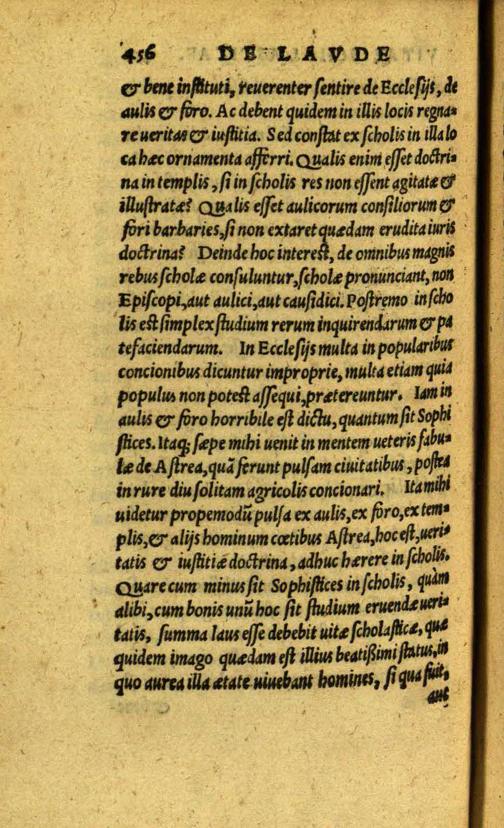 456 DE LAVDE
& bene instituti, reuerenter sentire de Ecclesijs, de
aulis & foro. Ac debent quidem in illis locis regna-
re ueritas & iustitia. Sed constat ex scholis in illa lo
ca hæc ornamenta afferri. Qualis enim esset doctri-
na in templis, si in scholis res non essent agitatæ &
illustratæ? Qualis esset aulicorum consiliorum &
fori barbaries, si non extaret quædam erudita iuris
doctrina? Deinde hoc interest, de omnibus magnis
rebus scholæ consuluntur, scholæ pronunciant, non
Episcopi, aut aulici, aut causidici. Postremo in scho
lis est simplex studium rerum inquirendarum & pa
tefaciendarum. In Ecclesijs multa in popularibus
concionibus dicuntur improprie, multa etiam quia
populus non potest assequi, prætereuntur. Iam in
aulis & foro horribile est dictu, quantum sit Sophi
stices. Itaq; sæpe mihi uenit in mentem ueteris fabu-
læ de Astrea, quã ferunt pulsam ciuitatibus, postea
in rure diu solitam agricolis concionari. Ita mihi
uidetur propemodũ pulsa ex aulis, ex foro, ex tem-
plis, & alijs hominum cœtibus Astrea, hoc est, ueri-
tatis & iustitiæ doctrina, adhuc hærere in scholis.
Quare cum minus sit Sophistices in scholis, quàm
alibi, cum bonis unũ hoc sit studium eruendæ ueri-
tatis, summa laus esse debebit uitæ scholasticæ, quæ
quidem imago quædam est illius beatißimi status, in
quo aurea illa ætate uiuebant homines, si qua fuit,
aut